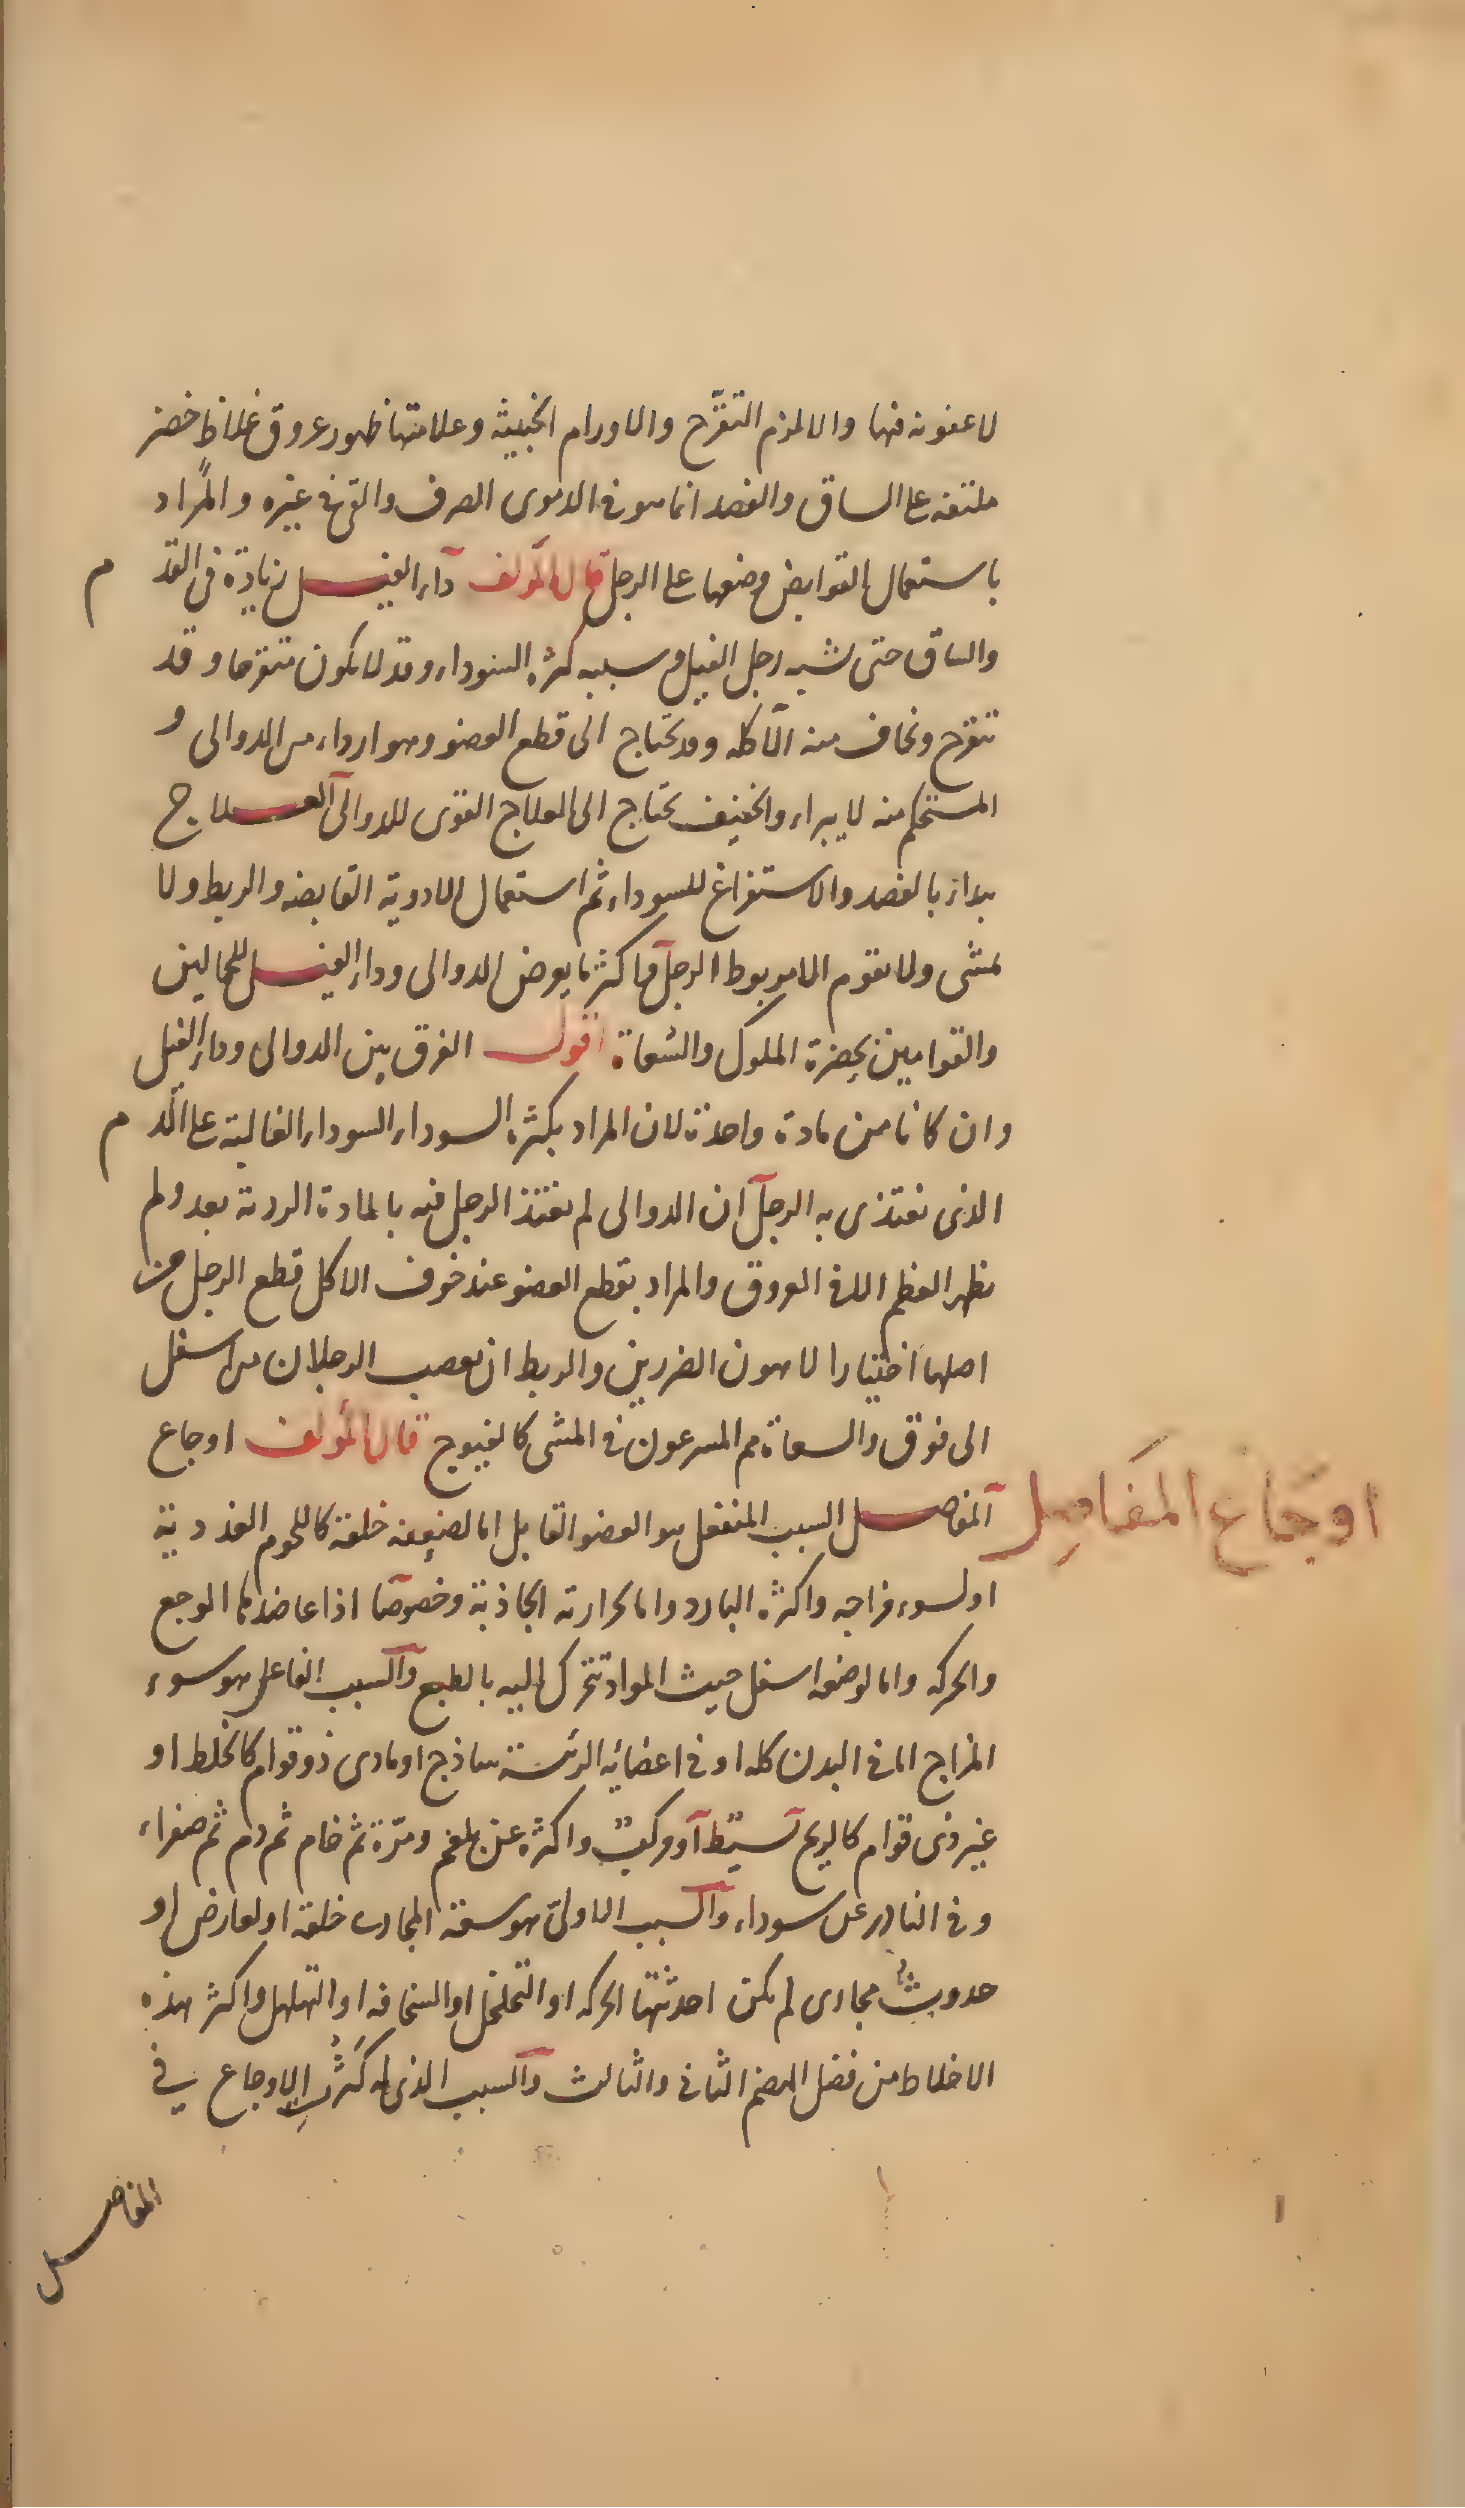 لا عفونة فيها والا لزم التقرّح والاورام الخبيثة وعلامتها ظهور عروق غلاظ خضر
ملتفة على الساق والفصد انما هو في الدموى الصرف والقئ في غيره والمراد
باستعمال القوابض وضعها على الرجل قال المؤلف داء الفيل زيادة في القدم
والساق حتى تشبه رجل الفيل وسببه كثرة السوداء وقد لا يكون متقرحا وقد
تتقرح ويخاف منه الآكلة وقد يحتاج الى قطع العضو وهو اردا من الدوالى و
المستحكم منه لا يبرا والخفيف يحتاج الى العلاج القوى للدوالى العلاج
يبدا بالفصد والاستفراغ للسوداء ثم استعمال الادوية القابضة والربط ولا
يمشى ولا يقوم الا مربوط الرجل واكثر ما يعرض الدوالى وداء الفيل للحمالين
والقوامين بحضرة الملوك والسعاة اقول الفرق بين الدوالى وداء الفيل
وان كانا من مادة واحدة لان المراد بكثرة السوداء السوداء الغالبة على الدم
الذى تغتذى به الرجل ان الدوالى لم تغتذ الرجل فيه بالمادة الردية بعد ولم
يظهر العظم الا في العروق والمراد بقطع العضو عند خوف الاكل قطع الرجل من
اصلها اختيارا لاهون الضررين والربط ان يعصب الرجلان من اسفل
الى فوق والسعاة هم المسرعون في المشى كالفيوج قال المؤلف اوجاع
اوجاع المفاصل
المفاصل السبب المنفعل هو العضو القابل اما لضعفه خلقة كاللحوم الغددية
او لسوء مزاجه واكثره البارد واما لحرارته الجاذبة وخصوصا اذا عاضدها الوجع
والحركة واما لوضعه اسفل حيث المواد تتحرك اليه بالطبع والسبب الفاعل هو سوء
المزاج اما في البدن كله او في اعضائه الرئيسة ساذج او مادى ذو قوام كالخلط او
غير ذى قوام كالريح بسيط او مركب واكثره عن بلغم ومرّة ثم خام ثم دم ثم صفراء
وفي النادر عن سوداء والسبب الاولىّ هو سعة المجارى خلقة او لعارض او
حدوث مجارى لم يكن احدثتها الحركة او التخلخل او السخافة او التهلهل واكثر هذه
الاخلاط من فضل الهضم الثانى والثالث والسبب الذى له كثرت الاوجاع في
المفاصل